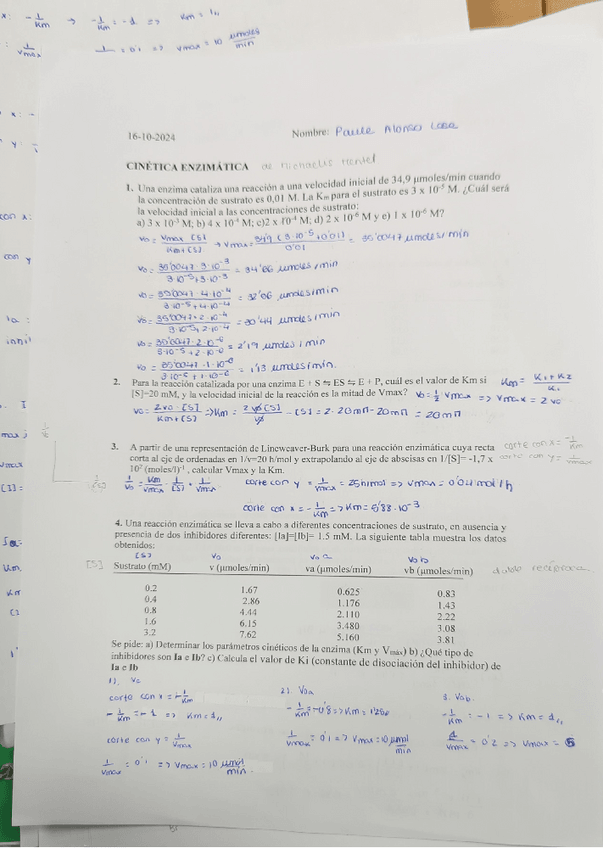 x: - 1/Km → - 1/Km = -1 => Km = 1
1/Vmax = 0'1 => Vmax = 10 μmoles/min
16-10-2024 Nombre: Paula Alonso
CINÉTICA ENZIMÁTICA de
1. Una enzima cataliza una reacción a una velocidad inicial de 34,9 μmoles/min cuando
la concentración de sustrato es 0,01 M. La Km para el sustrato es 3 x 10⁻⁵ M. ¿Cuál será
la velocidad inicial a las concentraciones de sustrato:
a) 3 x 10⁻³ M; b) 4 x 10⁻⁴ M; c)2 x 10⁻⁴ M; d) 2 x 10⁻⁶ M y e) 1 x 10⁻⁶ M?
Vo = Vmax [S] / Km + [S] → Vmax = 34'9 (3·10⁻⁵ + 0'01) / 0'01 = 35'0047 μmoles/min
Vo = 35'0047 · 3·10⁻³ / 3·10⁻⁵ + 3·10⁻³ = 34'66 μmoles/min
Vo = 35'0047 · 4·10⁻⁴ / 3·10⁻⁵ + 4·10⁻⁴ = 32'56 μmoles/min
Vo = 35'0047 · 2·10⁻⁴ / 3·10⁻⁵ + 2·10⁻⁴ = 30'44 μmoles/min
Vo = 35'0047 · 2·10⁻⁶ / 3·10⁻⁵ + 2·10⁻⁶ = 2'19 μmoles/min
Vo = 35'0047 · 1·10⁻⁶ / 3·10⁻⁵ + 1·10⁻⁶ = 1'13 μmoles/min.
2. Para la reacción catalizada por una enzima E + S ⇆ ES ⇆ E + P, cuál es el valor de Km si Km = K-1 + K2 / K1
[S]=20 mM, y la velocidad inicial de la reacción es la mitad de Vmax? Vo = 1/2 Vmax => Vmax = 2 Vo
Vo = 2Vo · [S] / Km + [S] => Km = 2 Vo [S] / Vo - [S] = 2 · 20mM - 20mM = 20mM
3. A partir de una representación de Lineweaver-Burk para una reacción enzimática cuya recta corte con x = - 1/Km
corta al eje de ordenadas en 1/v=20 h/mol y extrapolando al eje de abscisas en 1/[S]= -1,7 x corte con y = 1/Vmax
10² (moles/l)⁻¹, calcular Vmax y la Km.
1/Vo = Km/Vmax · 1/[S] + 1/Vmax corte con y = 1/Vmax = 25h/mol => Vmax = 0'04 mol/h
corte con x = - 1/Km => Km = 5'83·10⁻³
4. Una reacción enzimática se lleva a cabo a diferentes concentraciones de sustrato, en ausencia y
presencia de dos inhibidores diferentes: [Ia]=[Ib]= 1.5 mM. La siguiente tabla muestra los datos
obtenidos:
[S] Vo Vo a Vo b
[S] Sustrato (mM) v (μmoles/min) va (μmoles/min) vb (μmoles/min) doble recíproca
0.2 1.67 0.625 0.83
0.4 2.86 1.176 1.43
0.8 4.44 2.110 2.22
1.6 6.15 3.480 3.08
3.2 7.62 5.160 3.81
Se pide: a) Determinar los parámetros cinéticos de la enzima (Km y Vmax) b) ¿Qué tipo de
inhibidores son Ia e Ib? c) Calcula el valor de Ki (constante de disociación del inhibidor) de
Ia e Ib
1). Vo 2). Voa 3. Vob.
corte con x = - 1/Km - 1/Km = -0'8 => Km = 1'250 - 1/Km = -1 => Km = 1
- 1/Km = -1 => Km = 1
corte con y = 1/Vmax 1/Vmax = 0'1 => Vmax = 10 μmol/min 1/Vmax = 0'2 => Vmax = 5
1/Vmax = 0'1 => Vmax = 10 μmol/min.